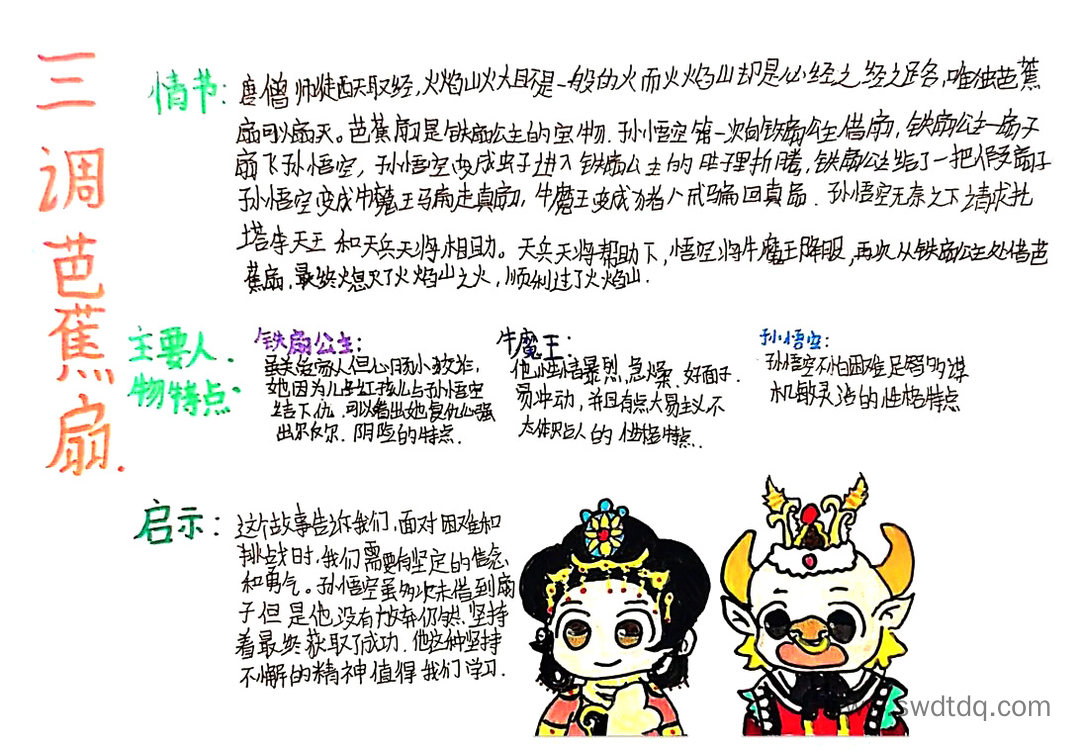 三调芭蕉扇.
情节:
唐僧师徒西天取经,火焰山火大且不是一般的火而火焰山却是必经之路,唯独芭蕉
扇可以扇灭。芭蕉扇是铁扇公主的宝物.孙悟空第一次向铁扇公主借扇,铁扇公主一扇子
扇飞孙悟空,孙悟空变成虫子进入铁扇公主的肚子里折腾,铁扇公主给了一把假扇子
孙悟空变成牛魔王骗走真扇,牛魔王变成猪八戒骗回真扇.孙悟空无奈之下请求托
塔李天王和天兵天将相助。天兵天将帮助下,悟空将牛魔王降服,再次从铁扇公主处借芭
蕉扇,最终熄灭了火焰山之火,顺利过了火焰山.
主要人
物特点:
铁扇公主:
虽美若家人但心胸狭小狡诈,
她因为儿红孩儿与孙悟空
结下仇,可以看出她复仇心强
出尔反尔.阴险的特点.
牛魔王:
他性情暴烈,急燥、好面子.
易冲动,并且有点大男主义不
太体贴人的性格特点.
孙悟空:
孙悟空不怕困难足智多谋
机敏灵活的性格特点
启示:
这个故事告诉我们,面对困难和
挑战时,我们需要有坚定的信念
和勇气。孙悟空虽多次未借到扇
子但是他没有放弃仍然坚持
着最终获取了成功.他这种坚持
不懈的精神值得我们学习.
swdtdq.com